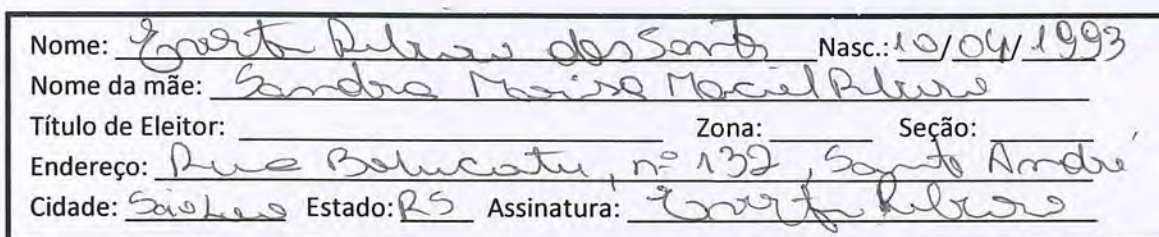 Nome: Ribeiro dos Santos Nasc.: 10/04/1993
Nome da mãe: Sandra Maciel Ribeiro
Título de Eleitor: Zona: Seção:
Endereço: Rua nº 132, Santo André
Cidade: São Leo Estado: RS Assinatura: Ribeiro